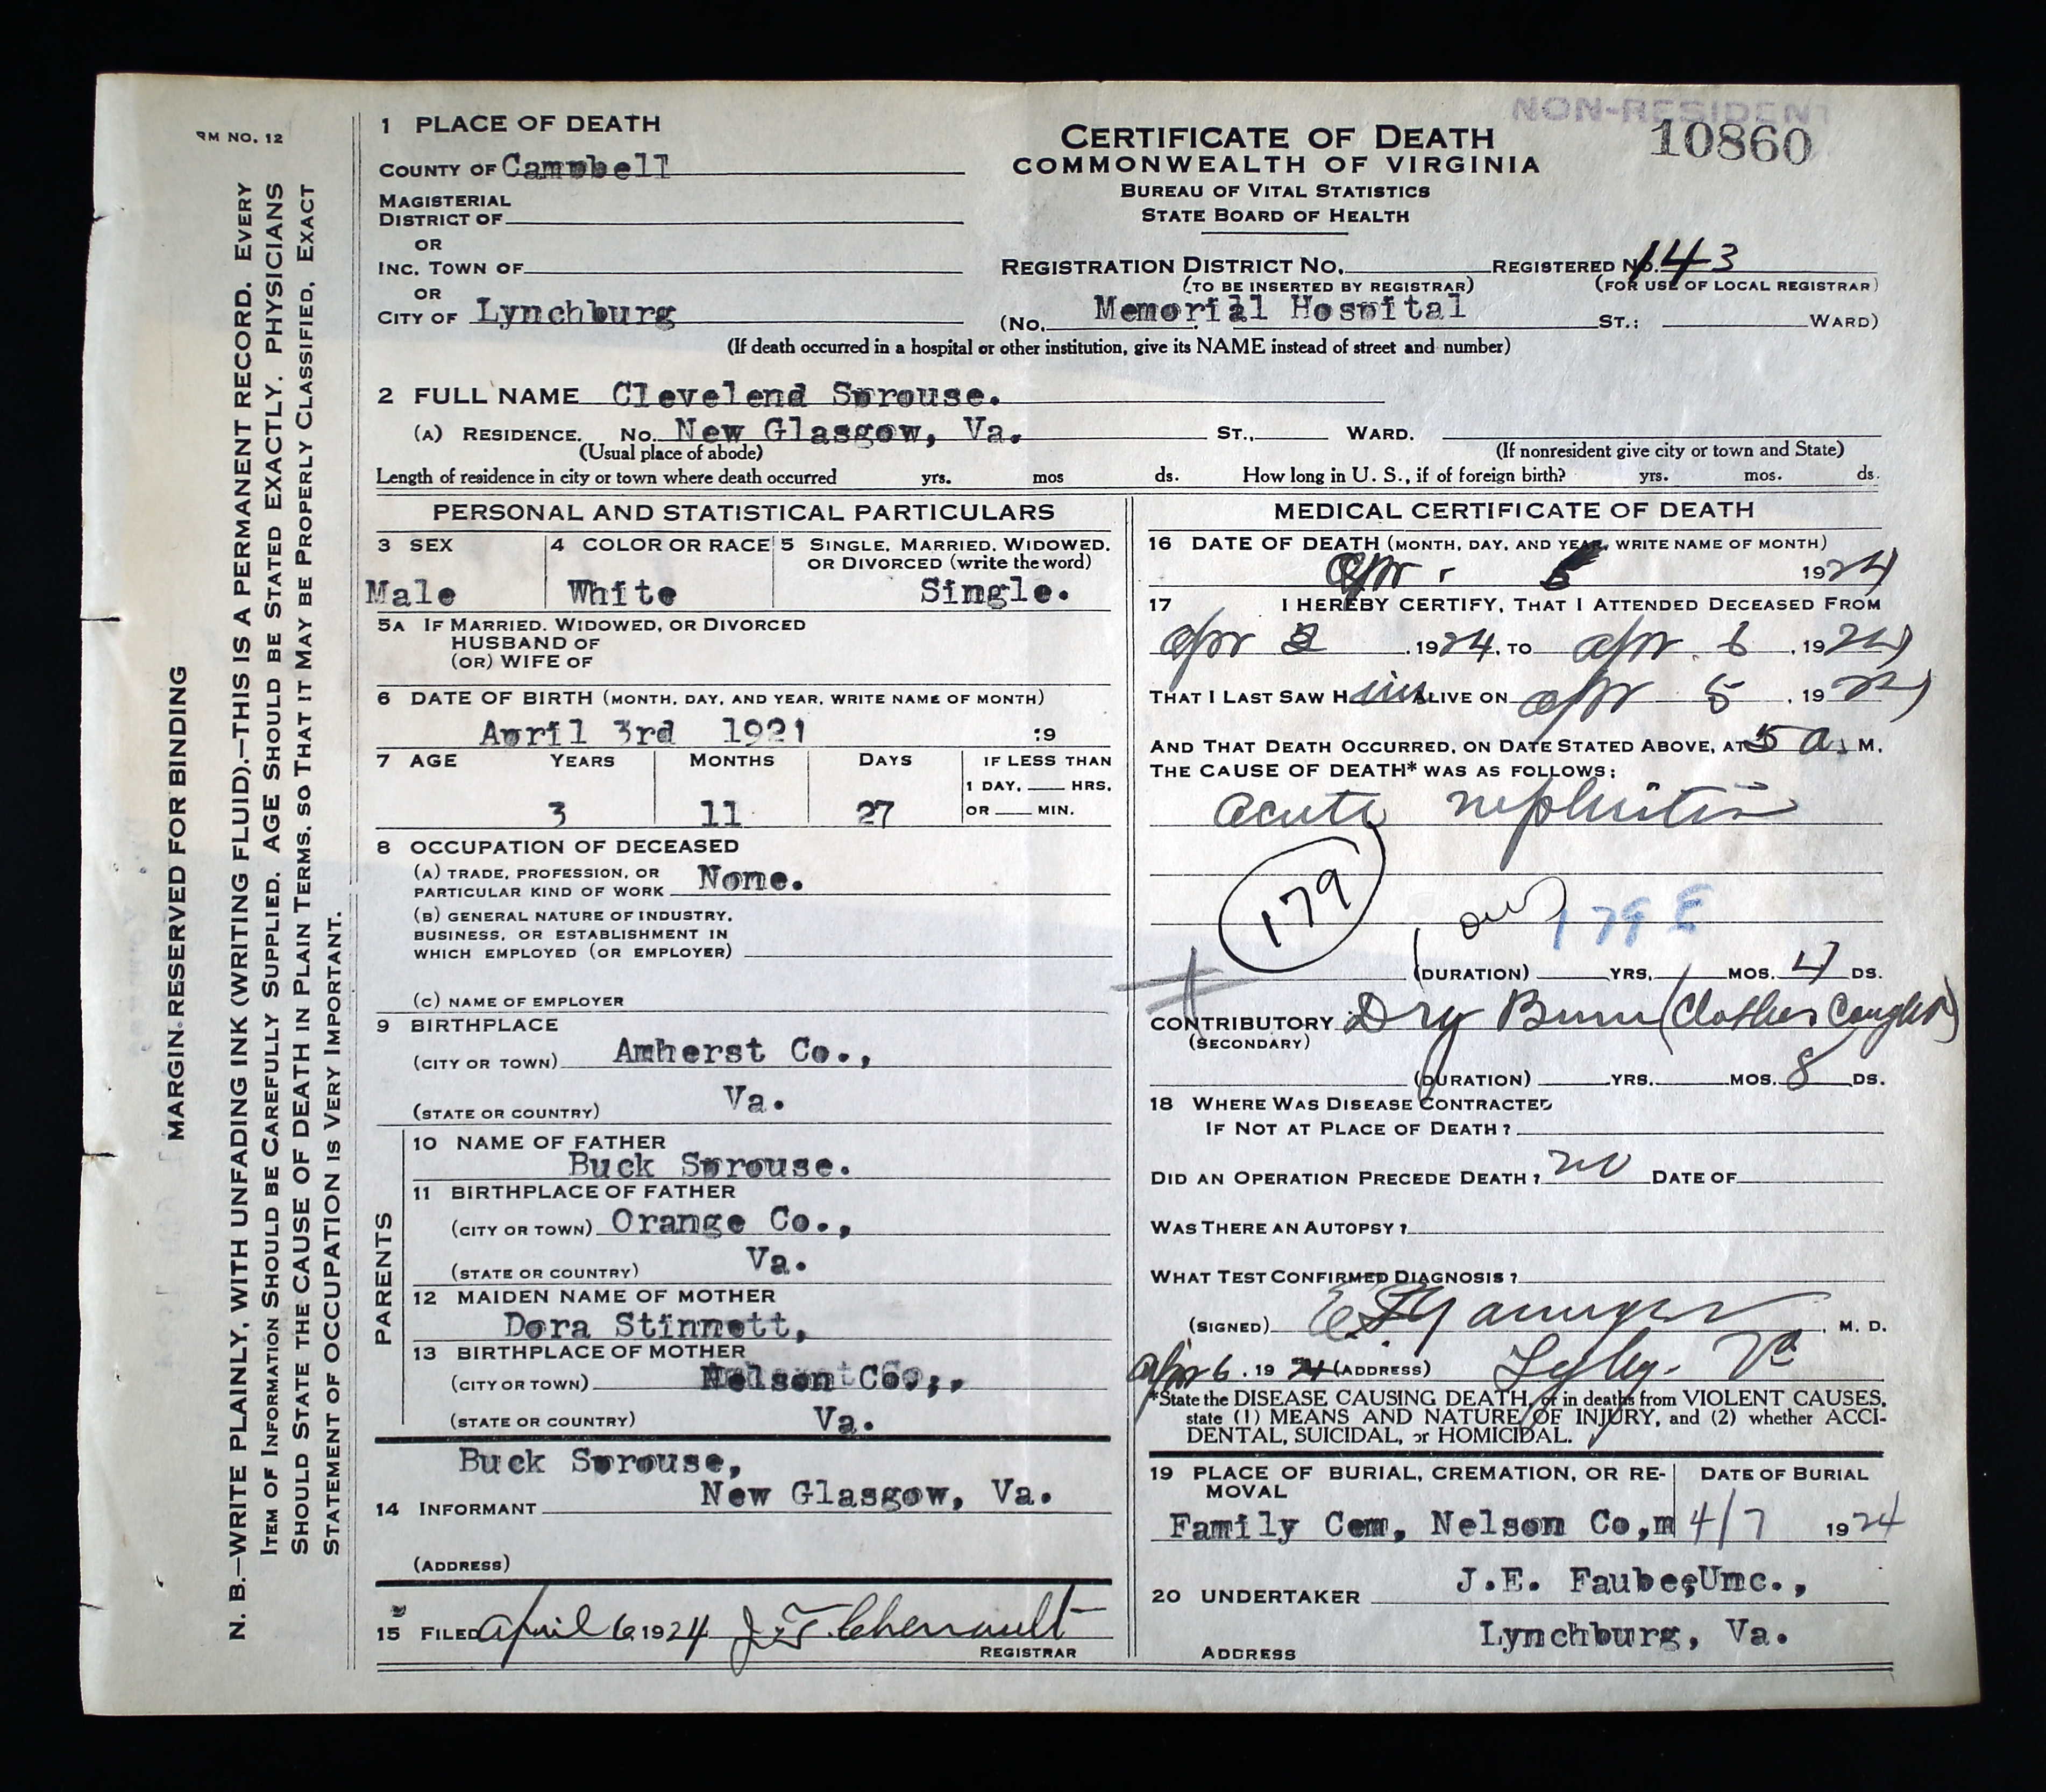 NON-RESIDENT
10860
RM NO. 12
MARGIN RESERVED FOR BINDING
N. B.—WRITE PLAINLY, WITH UNFADING INK (WRITING FLUID).—THIS IS A PERMANENT RECORD. EVERY
ITEM OF INFORMATION SHOULD BE CAREFULLY SUPPLIED. AGE SHOULD BE STATED EXACTLY. PHYSICIANS
SHOULD STATE THE CAUSE OF DEATH IN PLAIN TERMS, SO THAT IT MAY BE PROPERLY CLASSIFIED. EXACT
STATEMENT OF OCCUPATION IS VERY IMPORTANT.
CERTIFICATE OF DEATH
COMMONWEALTH OF VIRGINIA
BUREAU OF VITAL STATISTICS
STATE BOARD OF HEALTH
1 PLACE OF DEATH
COUNTY OF Campbell
MAGISTERIAL
DISTRICT OF
OR
INC. TOWN OF
OR
CITY OF Lynchburg
REGISTRATION DISTRICT NO. REGISTERED NO. 143
(TO BE INSERTED BY REGISTRAR) (FOR USE OF LOCAL REGISTRAR)
(No. Memorial Hospital ST.; WARD)
(If death occurred in a hospital or other institution, give its NAME instead of street and number)
2 FULL NAME Clevelend Sprouse.
(A) RESIDENCE. No. New Glasgow, Va. ST., WARD.
(Usual place of abode) (If nonresident give city or town and State)
Length of residence in city or town where death occurred yrs. mos ds. How long in U. S., if of foreign birth? yrs. mos. ds.
PERSONAL AND STATISTICAL PARTICULARS
3 SEX 4 COLOR OR RACE 5 SINGLE, MARRIED, WIDOWED,
OR DIVORCED (write the word)
Male White Single.
5A IF MARRIED, WIDOWED, OR DIVORCED
HUSBAND OF
(OR) WIFE OF
6 DATE OF BIRTH (MONTH, DAY, AND YEAR, WRITE NAME OF MONTH)
April 3rd 1921 :9
7 AGE YEARS MONTHS DAYS IF LESS THAN
1 DAY, HRS.
3 11 27 OR MIN.
8 OCCUPATION OF DECEASED
(A) TRADE, PROFESSION, OR
PARTICULAR KIND OF WORK None.
(B) GENERAL NATURE OF INDUSTRY,
BUSINESS, OR ESTABLISHMENT IN
WHICH EMPLOYED (OR EMPLOYER)
(C) NAME OF EMPLOYER
9 BIRTHPLACE
(CITY OR TOWN) Amherst Co.,
(STATE OR COUNTRY) Va.
PARENTS
10 NAME OF FATHER
Buck Sprouse.
11 BIRTHPLACE OF FATHER
(CITY OR TOWN) Orange Co.,
(STATE OR COUNTRY) Va.
12 MAIDEN NAME OF MOTHER
Dora Stinnett,
13 BIRTHPLACE OF MOTHER
(CITY OR TOWN) Nelson Co.,
(STATE OR COUNTRY) Va.
Buck Sprouse,
14 INFORMANT New Glasgow, Va.
(ADDRESS)
15 FILED April 6, 1924 J. T. Chenault
REGISTRAR
MEDICAL CERTIFICATE OF DEATH
16 DATE OF DEATH (MONTH, DAY, AND YEAR, WRITE NAME OF MONTH)
Apr. 5 1924
17 I HEREBY CERTIFY, THAT I ATTENDED DECEASED FROM
Apr 2, 1924, TO Apr. 6, 1924
THAT I LAST SAW HIM ALIVE ON Apr 5, 1924
AND THAT DEATH OCCURRED, ON DATE STATED ABOVE, AT 5 a. M.
THE CAUSE OF DEATH* WAS AS FOLLOWS:
acute nephritis
179
179 E
(DURATION) YRS. MOS. 4 DS.
CONTRIBUTORY Dry Burn (Clothes Caught)
(SECONDARY)
(DURATION) YRS. MOS. 8 DS.
18 WHERE WAS DISEASE CONTRACTED
IF NOT AT PLACE OF DEATH?
DID AN OPERATION PRECEDE DEATH? no DATE OF
WAS THERE AN AUTOPSY?
WHAT TEST CONFIRMED DIAGNOSIS?
(SIGNED) , M. D.
Apr 6, 1924 (ADDRESS) Lyhg. Va
*State the DISEASE CAUSING DEATH, or in deaths from VIOLENT CAUSES,
state (1) MEANS AND NATURE OF INJURY, and (2) whether ACCI-
DENTAL, SUICIDAL, or HOMICIDAL.
19 PLACE OF BURIAL, CREMATION, OR RE- DATE OF BURIAL
MOVAL
Family Cem, Nelson Co,m 4/7 1924
20 UNDERTAKER J.E. Faube
ADDRESS Lynchburg, Va.